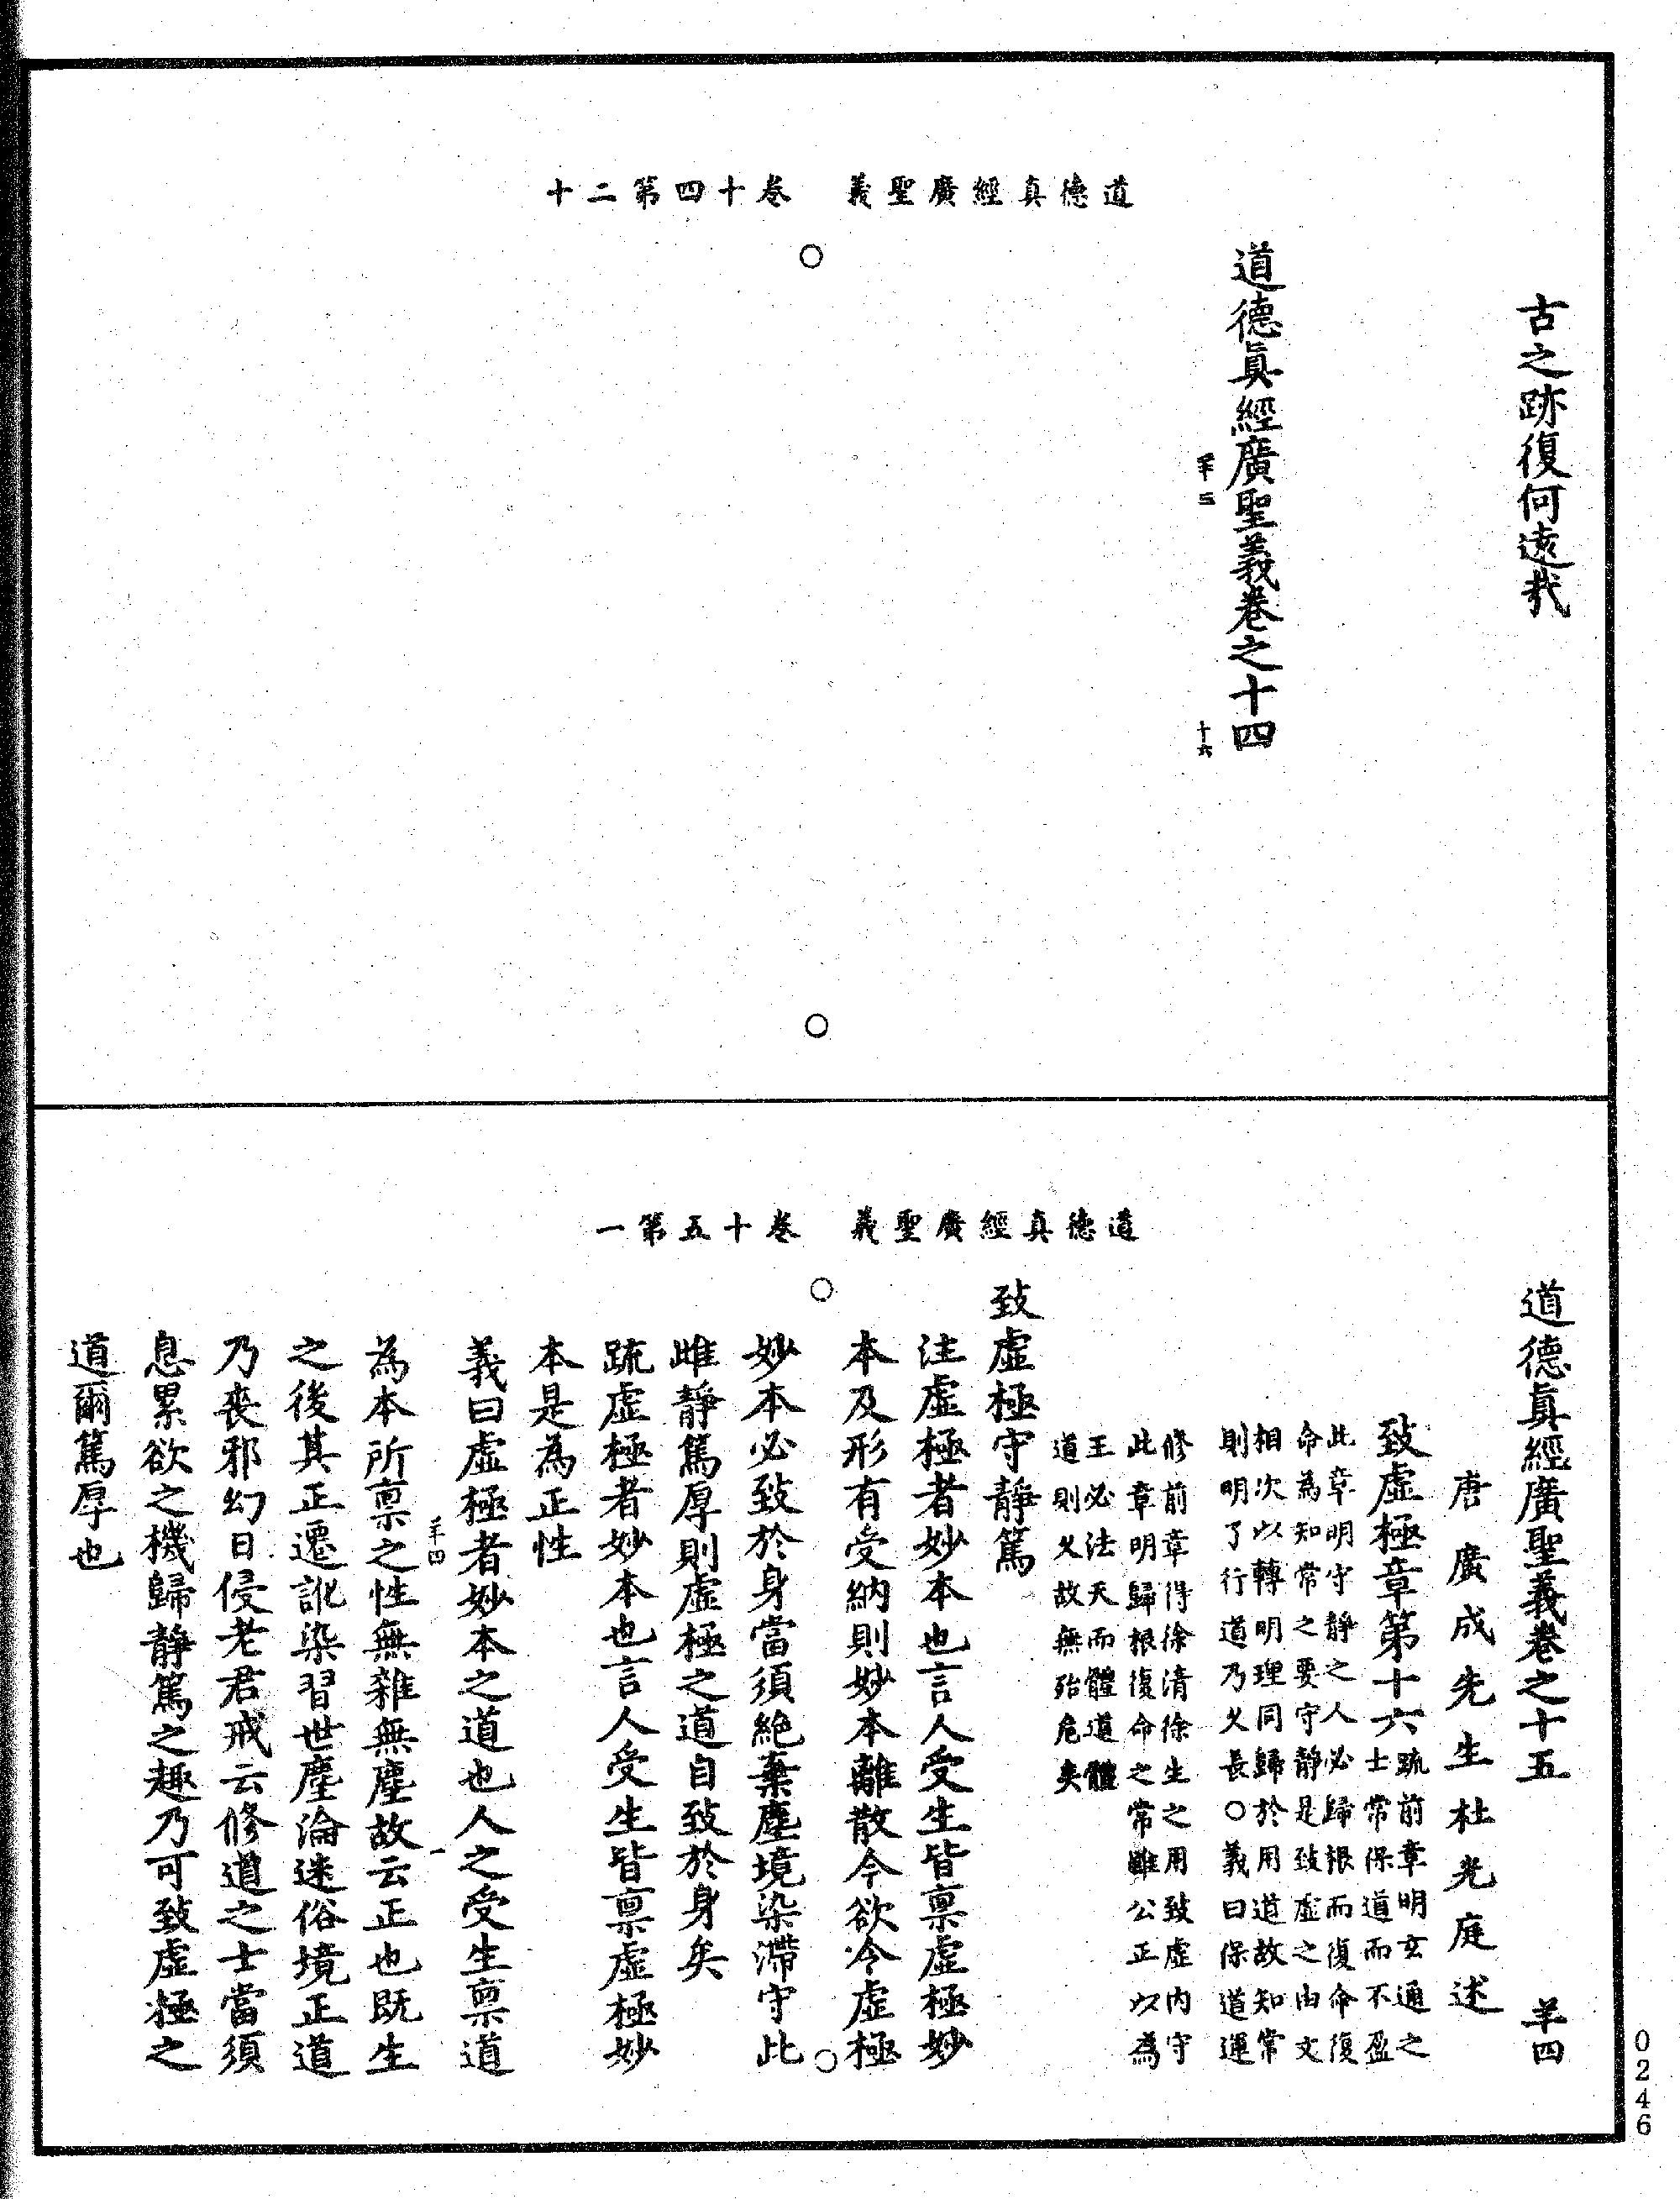 道德真經廣聖義　卷十四第二十
古之跡復何遠哉
道德眞經廣聖義卷之十四
羊三
十六
道德真經廣聖義　卷十五第一
道德眞經廣聖義卷之十五　羊四
唐廣成先生杜光庭述
致虛極章第十六
疏前章明玄通之
士常保道而不盈
此章明守靜之人必歸根而復命復
命為知常之要守靜是致虛之由文
相次以轉明理同歸於用道故知常
則明了行道乃乆長〇義曰保道運
修前章得徐清徐生之用致虛內守
此章明歸根復命之常雖公正以為
王必法天而體道體
道則乆故無殆危矣
致虛極守靜篤
注虛極者妙本也言人受生皆稟虛極妙
本及形有受納則妙本離散今欲令虛極
妙本必致於身當須絶棄塵境染滯守此
雌靜篤厚則虛極之道自致於身矣
疏虛極者妙本也言人受生皆稟虛極妙
本是為正性
義曰虛極者妙本之道也人之受生稟道
羊四
一
為本所稟之性無雜無塵故云正也既生
之後其正遷訛染習世塵淪迷俗境正道
乃喪邪幻日侵老君戒云修道之士當須
息累欲之機歸靜篤之趣乃可致虛極之
道爾篤厚也
0246